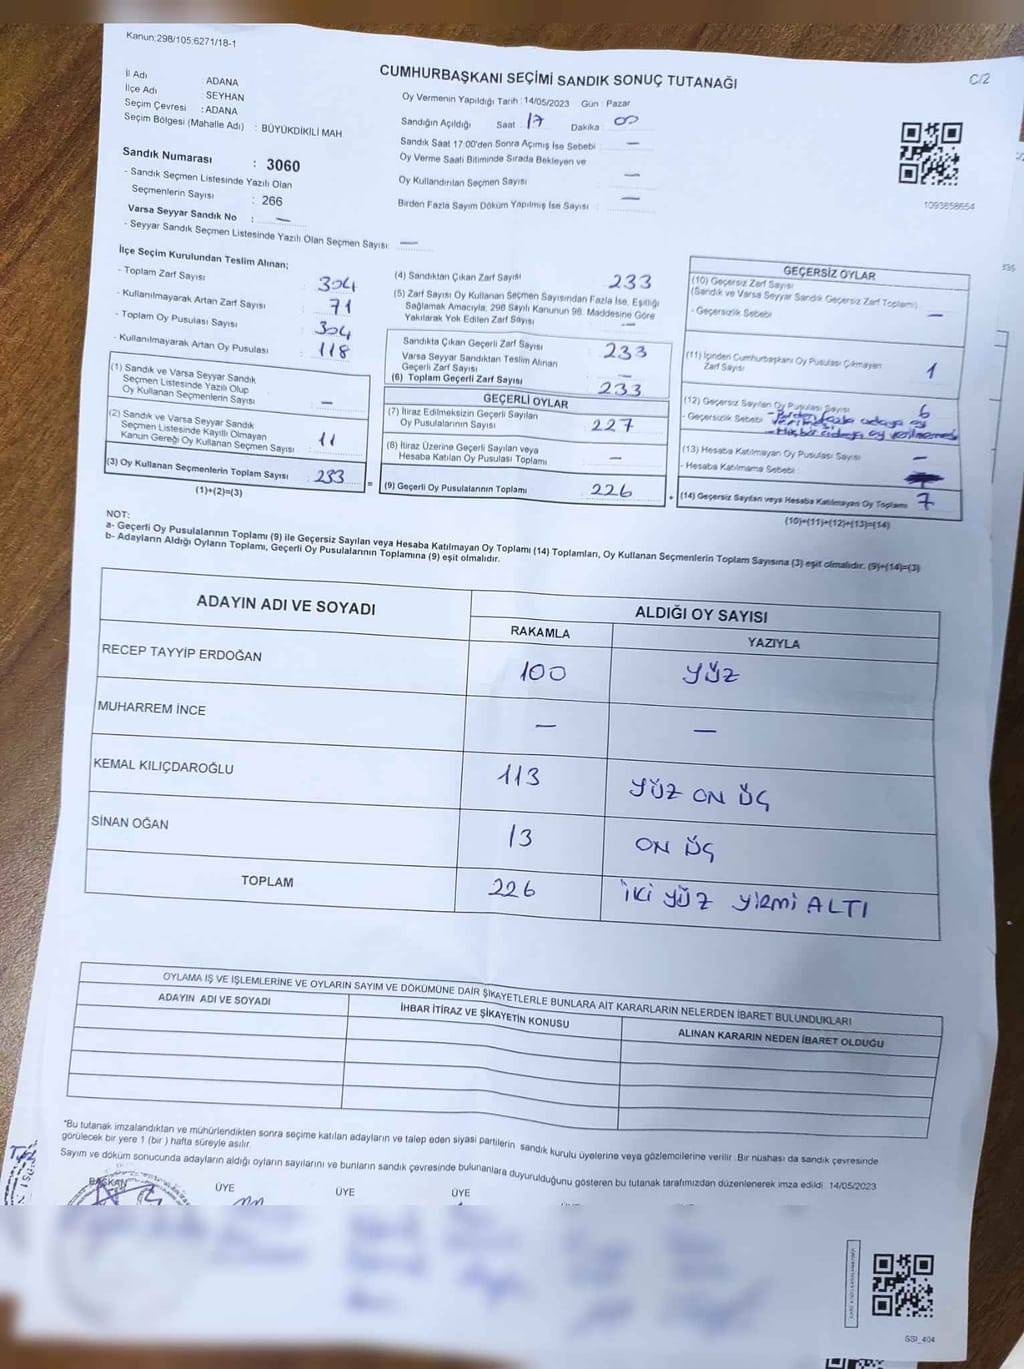 Kanun:298/105;6271/18-1
C/2
CUMHURBAŞKANI SEÇİMİ SANDIK SONUÇ TUTANAĞI
İl Adı : ADANA
İlçe Adı : SEYHAN
Seçim Çevresi : ADANA
Seçim Bölgesi (Mahalle Adı) : BÜYÜKDİKİLİ MAH
Sandık Numarası : 3060
- Sandık Seçmen Listesinde Yazılı Olan
Seçmenlerin Sayısı : 266
Varsa Seyyar Sandık No : —
- Seyyar Sandık Seçmen Listesinde Yazılı Olan Seçmen Sayısı: —
Oy Vermenin Yapıldığı Tarih : 14/05/2023 Gün : Pazar
Sandığın Açıldığı Saat : 17 Dakika : 00
Sandık Saat 17:00'den Sonra Açımış İse Sebebi : —
Oy Verme Saati Bitiminde Sırada Bekleyen ve
Oy Kullandırılan Seçmen Sayısı : —
Birden Fazla Sayım Döküm Yapılmış İse Sayısı : —
1093858654
İlçe Seçim Kurulundan Teslim Alınan;
- Toplam Zarf Sayısı : 304
- Kullanılmayarak Artan Zarf Sayısı : 71
- Toplam Oy Pusulası Sayısı : 304
- Kullanılmayarak Artan Oy Pusulası : 118
(1) Sandık ve Varsa Seyyar Sandık
Seçmen Listesinde Yazılı Olup
Oy Kullanan Seçmenlerin Sayısı : —
(2) Sandık ve Varsa Seyyar Sandık
Seçmen Listesinde Kayıtlı Olmayan
Kanun Gereği Oy Kullanan Seçmen Sayısı : 11
(3) Oy Kullanan Seçmenlerin Toplam Sayısı : 233
(1)+(2)=(3)
(4) Sandıktan Çıkan Zarf Sayısı : 233
(5) Zarf Sayısı Oy Kullanan Seçmen Sayısından Fazla İse, Eşitliği
Sağlamak Amacıyla, 298 Sayılı Kanunun 98. Maddesine Göre
Yakılarak Yok Edilen Zarf Sayısı : —
Sandıkta Çıkan Geçerli Zarf Sayısı : 233
Varsa Seyyar Sandıktan Teslim Alınan
Geçerli Zarf Sayısı : —
(6) Toplam Geçerli Zarf Sayısı : 233
GEÇERLİ OYLAR
(7) İtiraz Edilmeksizin Geçerli Sayılan
Oy Pusulalarının Sayısı : 227
(8) İtiraz Üzerine Geçerli Sayılan veya
Hesaba Katılan Oy Pusulası Toplamı : —
= (9) Geçerli Oy Pusulalarının Toplamı : 226
GEÇERSİZ OYLAR
(10) Geçersiz Zarf Sayısı
(Sandık ve Varsa Seyyar Sandık Geçersiz Zarf Toplamı) : —
- Geçersizlik Sebebi :
(11) İçinden Cumhurbaşkanı Oy Pusulası Çıkmayan
Zarf Sayısı : 1
(12) Geçersiz Sayılan Oy Pusulası Sayısı : 6
- Geçersizlik Sebebi : - Birden fazla adaya oy
verilmesi
- Hiç bir adaya oy verilmemesi
(13) Hesaba Katılmayan Oy Pusulası Sayısı : —
- Hesaba Katılmama Sebebi :
+ (14) Geçersiz Sayılan veya Hesaba Katılmayan Oy Toplamı : 7
(10)+(11)+(12)+(13)=(14)
NOT:
a- Geçerli Oy Pusulalarının Toplamı (9) ile Geçersiz Sayılan veya Hesaba Katılmayan Oy Toplamı (14) Toplamları, Oy Kullanan Seçmenlerin Toplam Sayısına (3) eşit olmalıdır. (9)+(14)=(3)
b- Adayların Aldığı Oyların Toplamı, Geçerli Oy Pusulalarının Toplamına (9) eşit olmalıdır.
ADAYIN ADI VE SOYADI ALDIĞI OY SAYISI
RAKAMLA YAZIYLA
RECEP TAYYİP ERDOĞAN 100 YÜZ
MUHARREM İNCE — —
KEMAL KILIÇDAROĞLU 113 YÜZ ON ÜÇ
SİNAN OĞAN 13 ON ÜÇ
TOPLAM 226 İKİ YÜZ YİRMİ ALTI
OYLAMA İŞ VE İŞLEMLERİNE VE OYLARIN SAYIM VE DÖKÜMÜNE DAİR ŞİKAYETLERLE BUNLARA AİT KARARLARIN NELERDEN İBARET BULUNDUKLARI
ADAYIN ADI VE SOYADI İHBAR İTİRAZ VE ŞİKAYETİN KONUSU ALINAN KARARIN NEDEN İBARET OLDUĞU
*Bu tutanak imzalandıktan ve mühürlendikten sonra seçime katılan adayların ve talep eden siyasi partilerin sandık kurulu üyelerine veya gözlemcilerine verilir .Bir nüshası da sandık çevresinde
görülecek bir yere 1 (bir ) hafta süreyle asılır.
Sayım ve döküm sonucunda adayların aldığı oyların sayılarını ve bunların sandık çevresinde bulunanlara duyurulduğunu gösteren bu tutanak tarafımızdan düzenlenerek imza edildi. 14/05/2023
BAŞKAN ÜYE ÜYE ÜYE
SSI_404